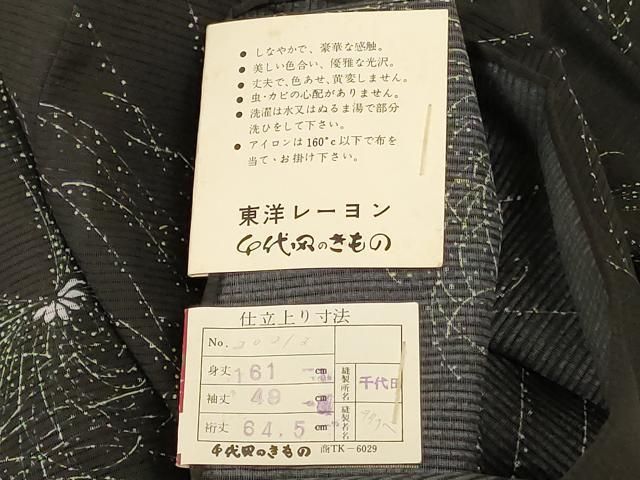 ● しなやかで、豪華な感触。
● 美しい色合い、優雅な光沢。
● 丈夫で、色あせ、黄変しません。
● 虫・カビの心配がありません。
● 洗濯は水又はぬるま湯で部分
洗ひをして下さい。
● アイロンは160°c以下で布を
当て・お掛け下さい。
東洋レーヨン
千代田のきもの
仕立上り寸法
No.
身丈 161 cm
袖丈 49
裄丈 64.5 cm
縫製所名 千代田
縫製者名
千代田のきもの 商TK-6029